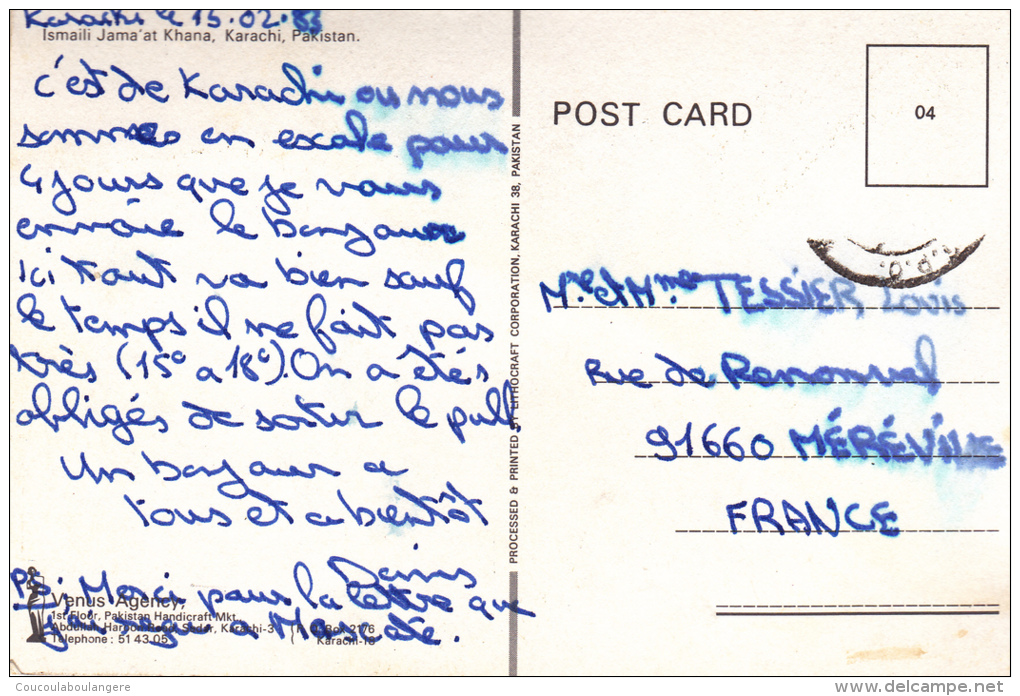 Karachi le 15.02.83
Ismaili Jama'at Khana, Karachi, Pakistan.
c'est de Karachi ou nous
sommes en escale pour
4 jours que je vous
envoie le bonjour
Ici tout va bien sauf
le temps il ne fait pas
très (15° a 18°). On a étés
obligés de sortir le pull.
Un bonjour a
tous et a bientôt
PS; Merci pour la lettre que
a Mascate.
Venus Agency,
1st Floor, Pakistan Handicraft Mkt.
Abdullah Haroon Road, Sadar, Karachi-3
Telephone: 51 43 05
P.O. Box 2176
Karachi-18
PROCESSED & PRINTED BY LITHOCRAFT CORPORATION, KARACHI 38, PAKISTAN
POST CARD
04
Mr et Mme TESSIER, Louis
Rue de
91660 MÉRÉVILLE
FRANCE
Coucoulaboulangere
delcampe.net